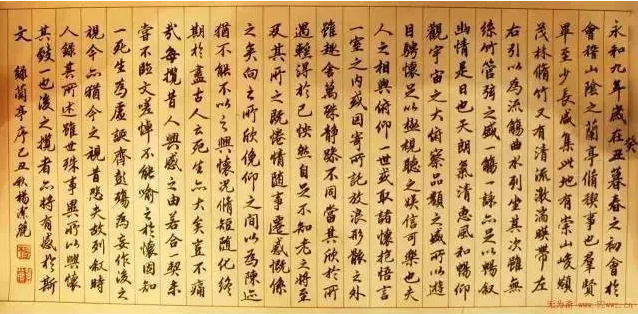 永和九年歲在癸丑暮春之初會於
會稽山陰之蘭亭脩禊事也群賢
畢至少長咸集此地有崇山峻領
茂林脩竹又有清流激湍映帶左
右引以為流觴曲水列坐其次雖無
絲竹管弦之盛一觴一詠亦足以暢叙
幽情是日也天朗氣清惠風和暢仰
觀宇宙之大俯察品類之盛所以遊
目騁懷足以極視聽之娛信可樂也夫
人之相與俯仰一世或取諸懷抱悟言
一室之內或因寄所託放浪形骸之外
雖趣舍萬殊静躁不同當其欣於所
遇輒得於己怏然自足不知老之將至
及其所之既惓情隨事遷感慨係
之矣向之所欣俛仰之間以為陳迹
猶不能不以之興懷況脩短隨化終
期於盡古人云死生亦大矣豈不痛
哉每攬昔人興感之由若合一契未
嘗不臨文嗟悼不能喻之於懷固知
一死生為虛誕齊彭殤為妄作後之
視今亦猶今之視昔悲夫故列叙時
人錄其所述雖世殊事異所以興懷
其致一也後之攬者亦將有感於斯
文 錄蘭亭序己丑秋楊潔